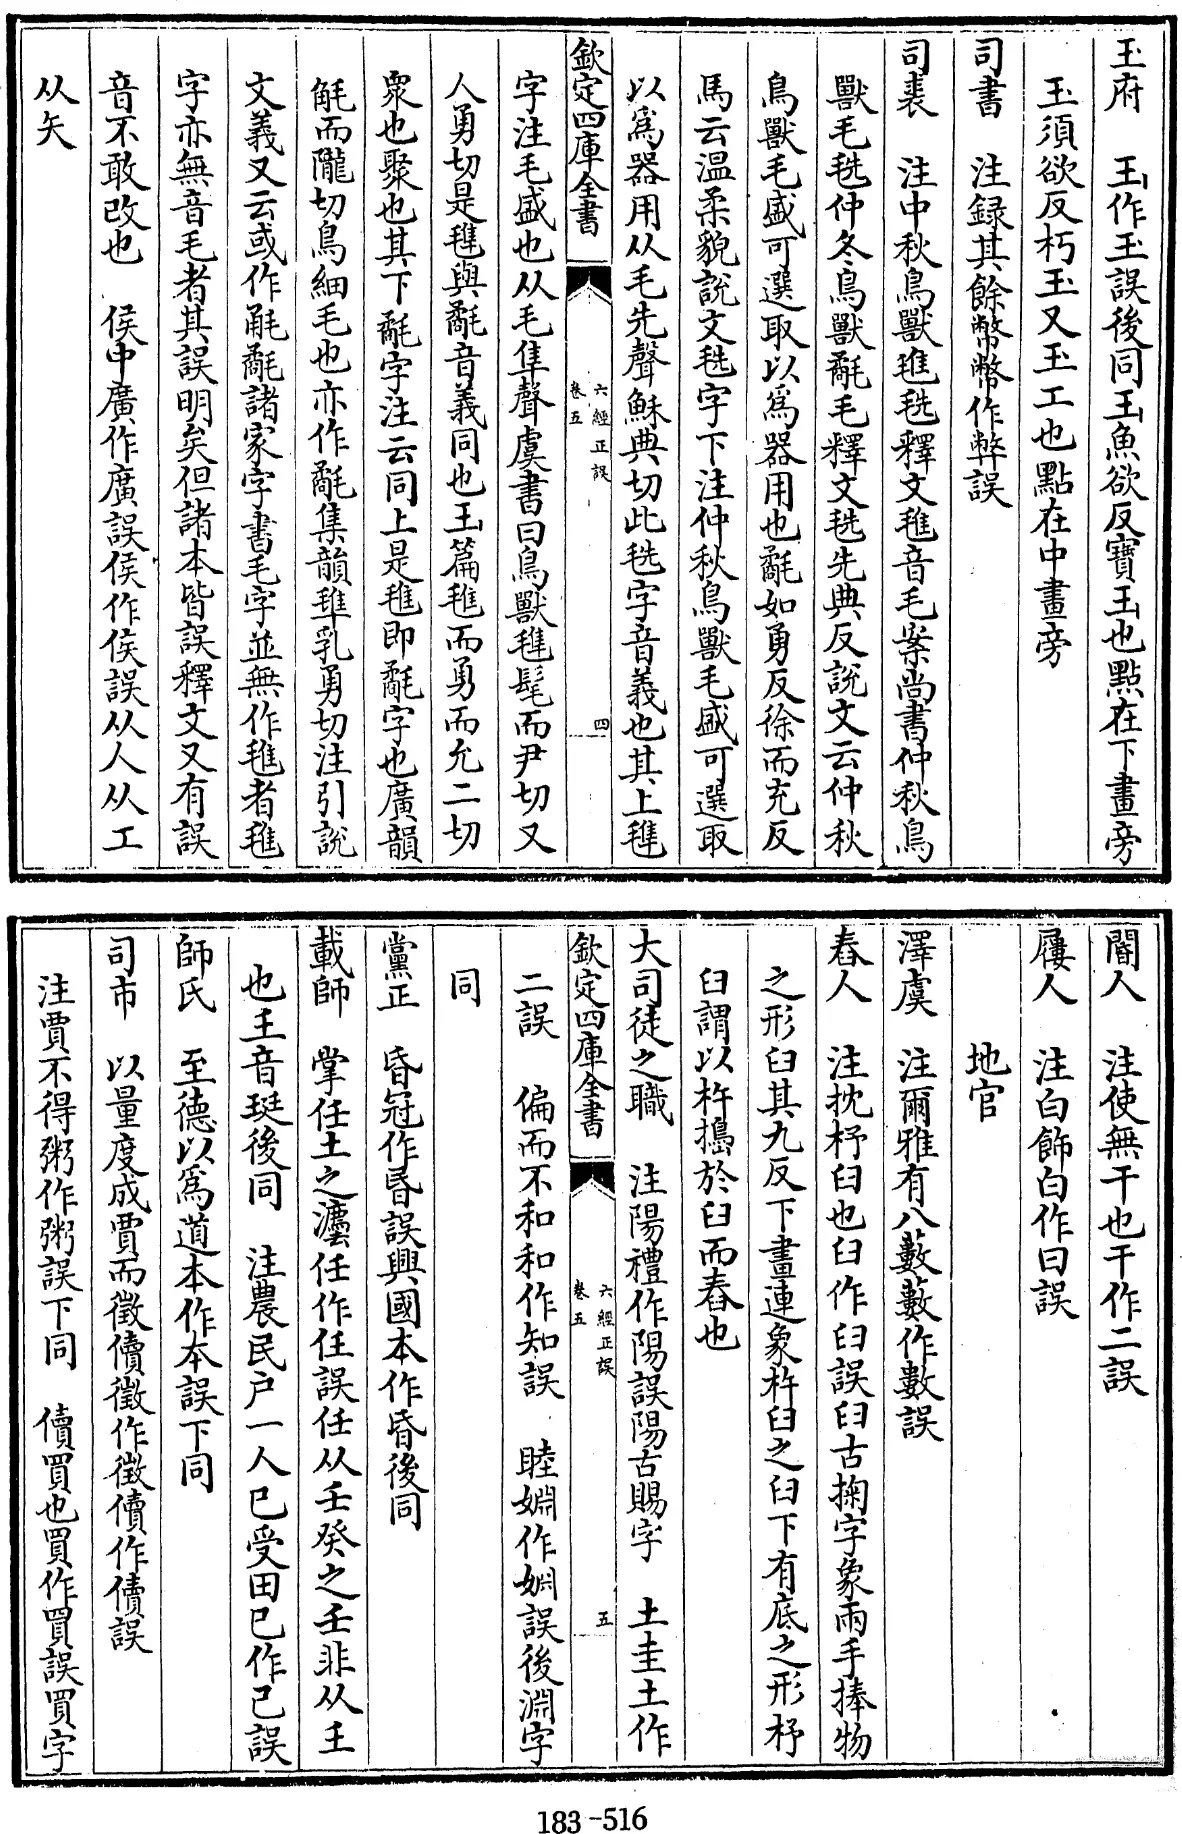 玉府　王作玉誤後同王魚欲反寶玉也點在下畫旁
玉須欲反朽玉又玉工也點在中畫旁
司書　注録其餘幣幣作弊誤
司裘　注中秋鳥獸毨釋文毴音毛案尚書仲秋鳥
獸毛毨仲冬鳥獸氄毛釋文毨先典反說文云仲秋
鳥獸毛盛可選取以爲器用也氄如勇反徐而充反
馬云温柔貌說文毨字下注仲秋鳥獸毛盛可選取
以爲器用从毛先聲穌典切此毨字音義也其上
欽定四庫全書　六經正誤　卷五　四
字注毛盛也从毛隼聲虞書曰鳥獸髦而尹切又
人勇切是與氄音義同也玉篇而勇而允二切
衆也聚也其下氄字注云同上是即氄字也廣韻
而隴切鳥細毛也亦作氄集韻乳勇切注引說
文義又云或作氄諸家字書毛字並無作者
字亦無音毛者其誤明矣但諸本皆誤釋文又有誤
音不敢改也　侯中廣作廣誤侯作侯誤从人从工
从矢
閽人　注使無干也干作二誤
屨人　注白飾白作曰誤
地官
澤虞　注爾雅有八藪藪作數誤
舂人　注抌杼臼也臼作𦥑誤𦥑古掬字象兩手捧物
之形臼其九反下畫連象杵臼之臼下有底之形杼
臼謂以杵搗於臼而舂也
大司徒之職　注陽禮作陽誤陽古賜字　土圭土作
欽定四庫全書　六經正誤　卷五　五
二誤　偏而不和和作知誤　睦婣作婣誤後淵字
同
黨正　昏冠作昬誤興國本作昏後同
載師　掌任土之灋任作任誤任从壬癸之壬非从王
也王音珽後同　注農民户一人已受田已作己誤
師氏　至德以爲道本作夲誤下同
司市　以量度成賈而徵儥徵作徵儥作儥誤
注賈不得粥作粥誤下同　儥買也買作買誤買字
183-516